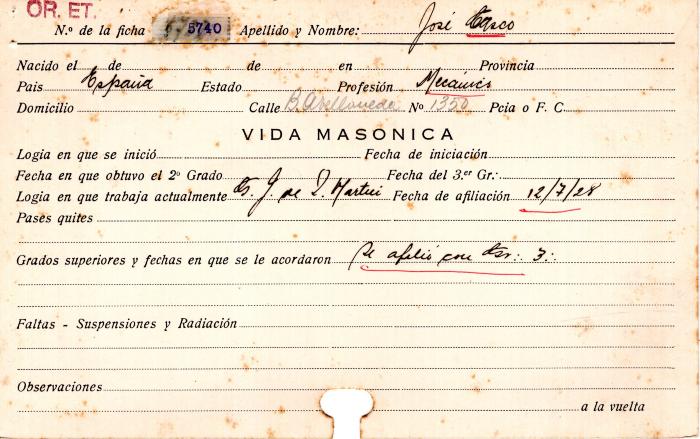 OR. ET.
N.º de la ficha 5740 Apellido y Nombre: José
Nacido el de de en Provincia
Pais España Estado Profesión Mecánico
Domicilio Calle B. Avellaneda Nº 1350 Pcia o F. C.
VIDA MASONICA
Logia en que se inició Fecha de iniciación
Fecha en que obtuvo el 2º Grado Fecha del 3.er Gr.:
Logia en que trabaja actualmente G. J. de S. Martin Fecha de afiliación 12/7/28
Pases quites
Grados superiores y fechas en que se le acordaron Se afilió con 3.:
Faltas - Suspensiones y Radiación
Observaciones
a la vuelta